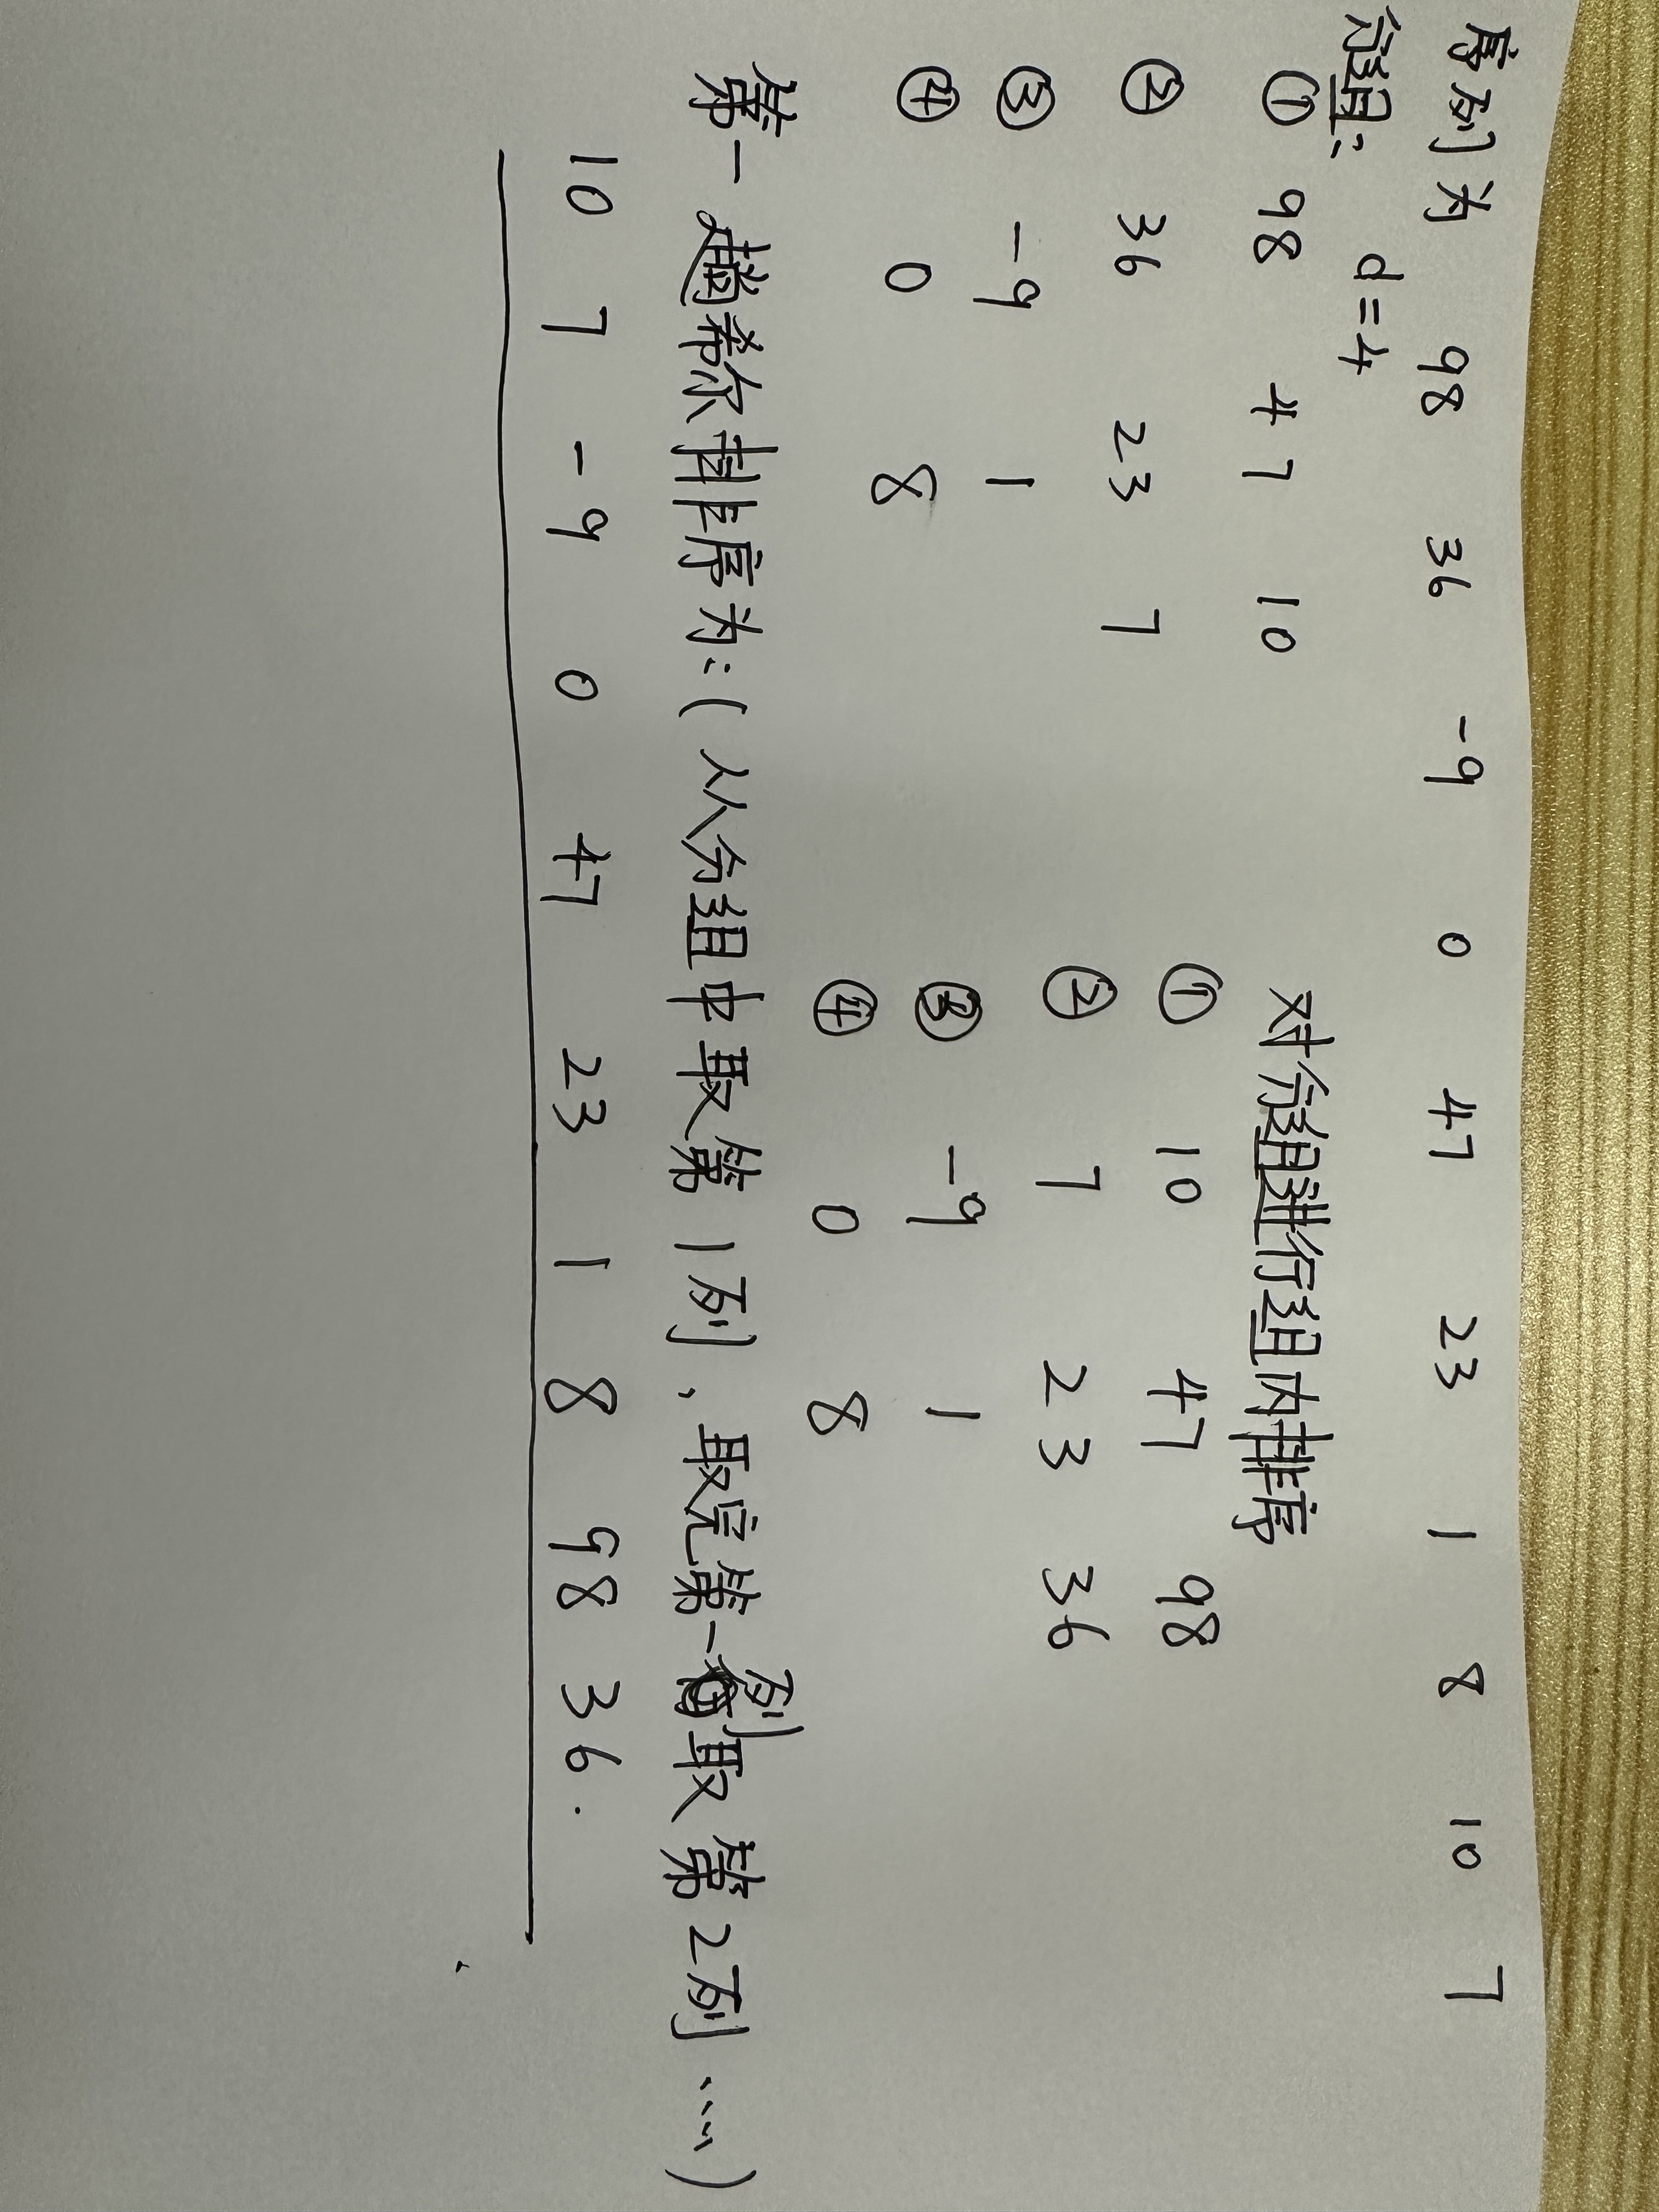 序列为 98 36 -9 0 47 23 1 8 10 7
分组: d=4
① 98 47 10
② 36 23 7
③ -9 1
④ 0 8
对分组进行组内排序
① 10 47 98
② 7 23 36
③ -9 1
④ 0 8
第一趟希尔排序为:(从分组中取第1列,取完第一列取第2列……)
10 7 -9 0 47 23 1 8 98 36.